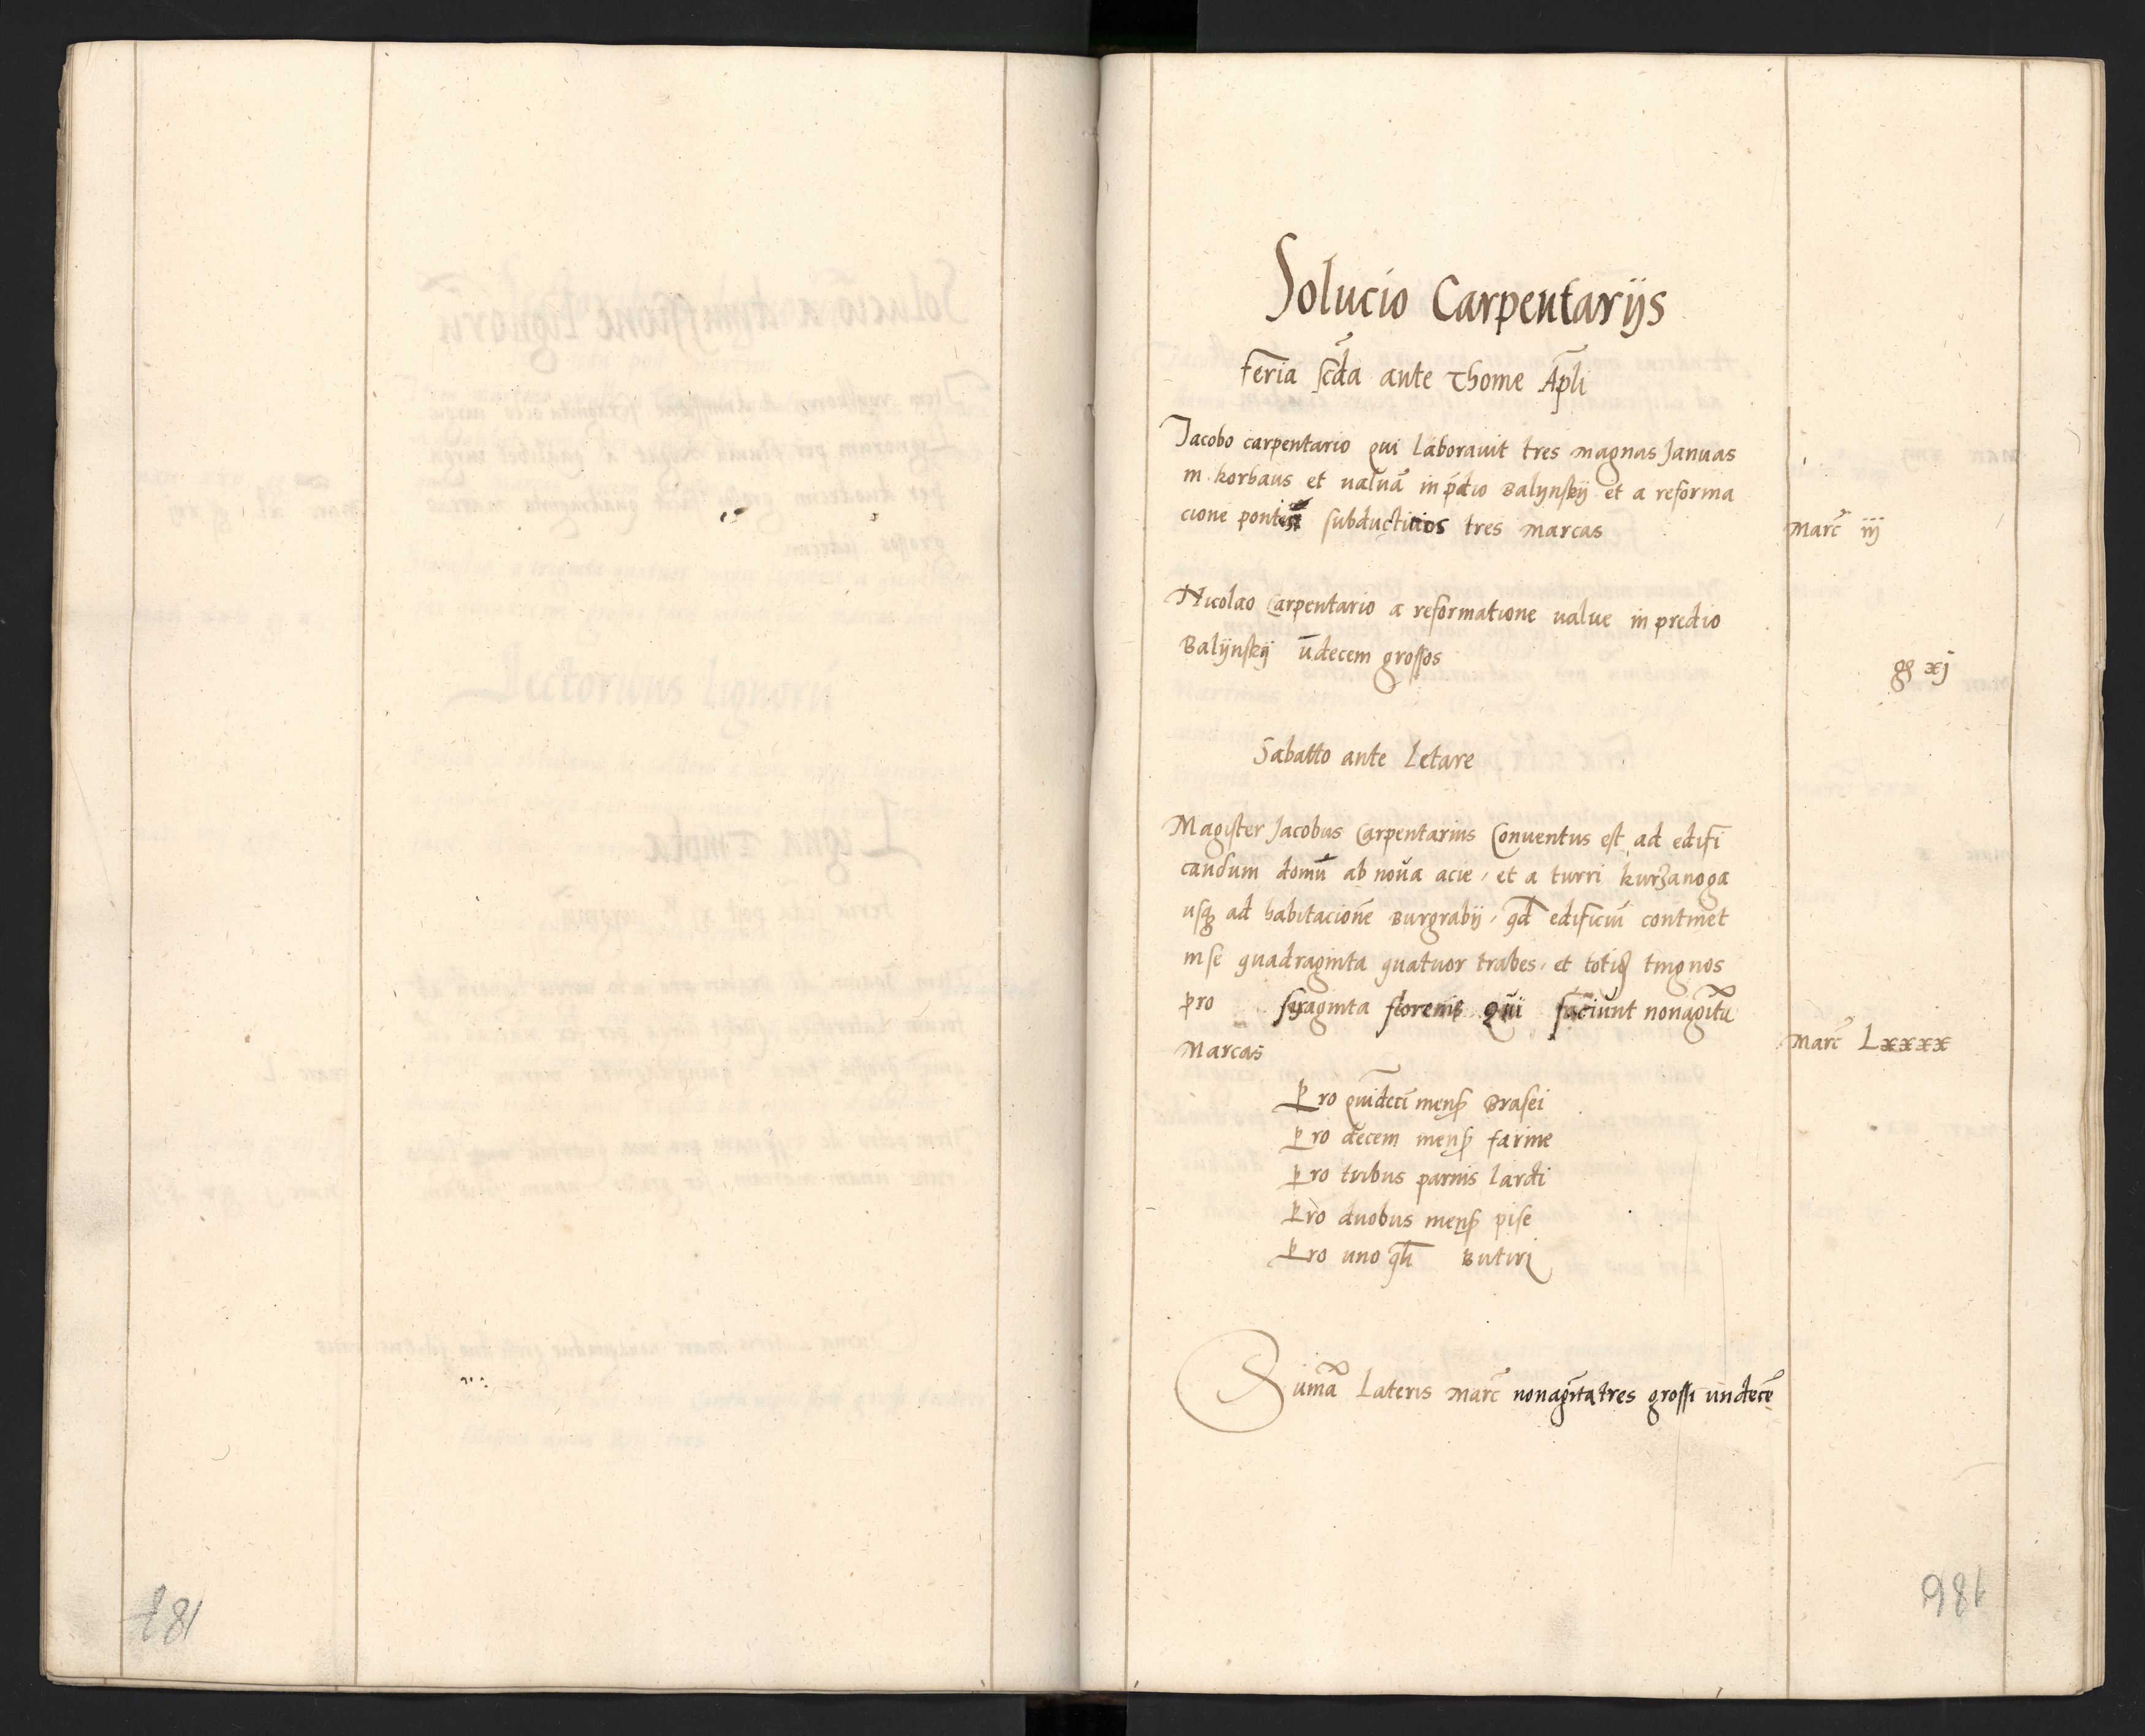 Solucio Carpentarijs
Feria scda ante Thome Apli
Jacobo carpentario qui laborauit tres magnas Januas
in korbaus et valuā in p̄dio Balynskij et a reforma
cione pontis subductitios tres marcas
Marc̄ iij
Nicolao Carpentario a reformatione value in predio
Balÿnskÿ ūdecem grossos
gg xj
Sabatto ante Letare
Magister Jacobus Carpentarius Conuentus est ad edifi
candum domū ab noua acie, et a turri kurzanoga
usq3 ad habitacionē Burgrabij, qd edificiū continet
in se quadraginta quatuor trabes, et totid tingnos
pro sexaginta florenis qui faciunt nonagīta
Marcas
Marc̄ Lxxxx
Pro quīdecī mens̄ Brasei
Pro decem mens̄ farine
Pro tribus parnis lardi
Pro duobus mens̄ pise
Pro uno qh̄ Butiri
Sūma Lateris marc̄ nonagītatres grossi undecē
187
186